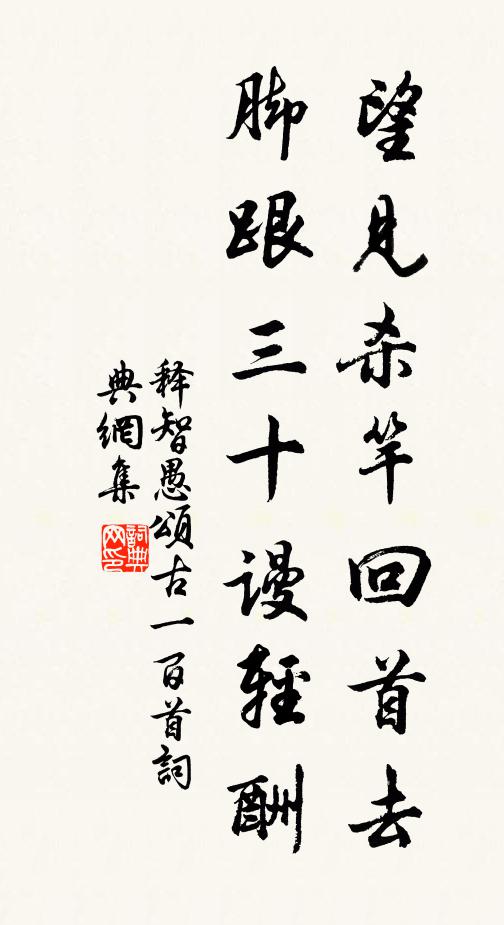 望見杀竿回首去
脚跟三十謾輕酬
释智愚頌古一百首詞
典網集
詞典
网印